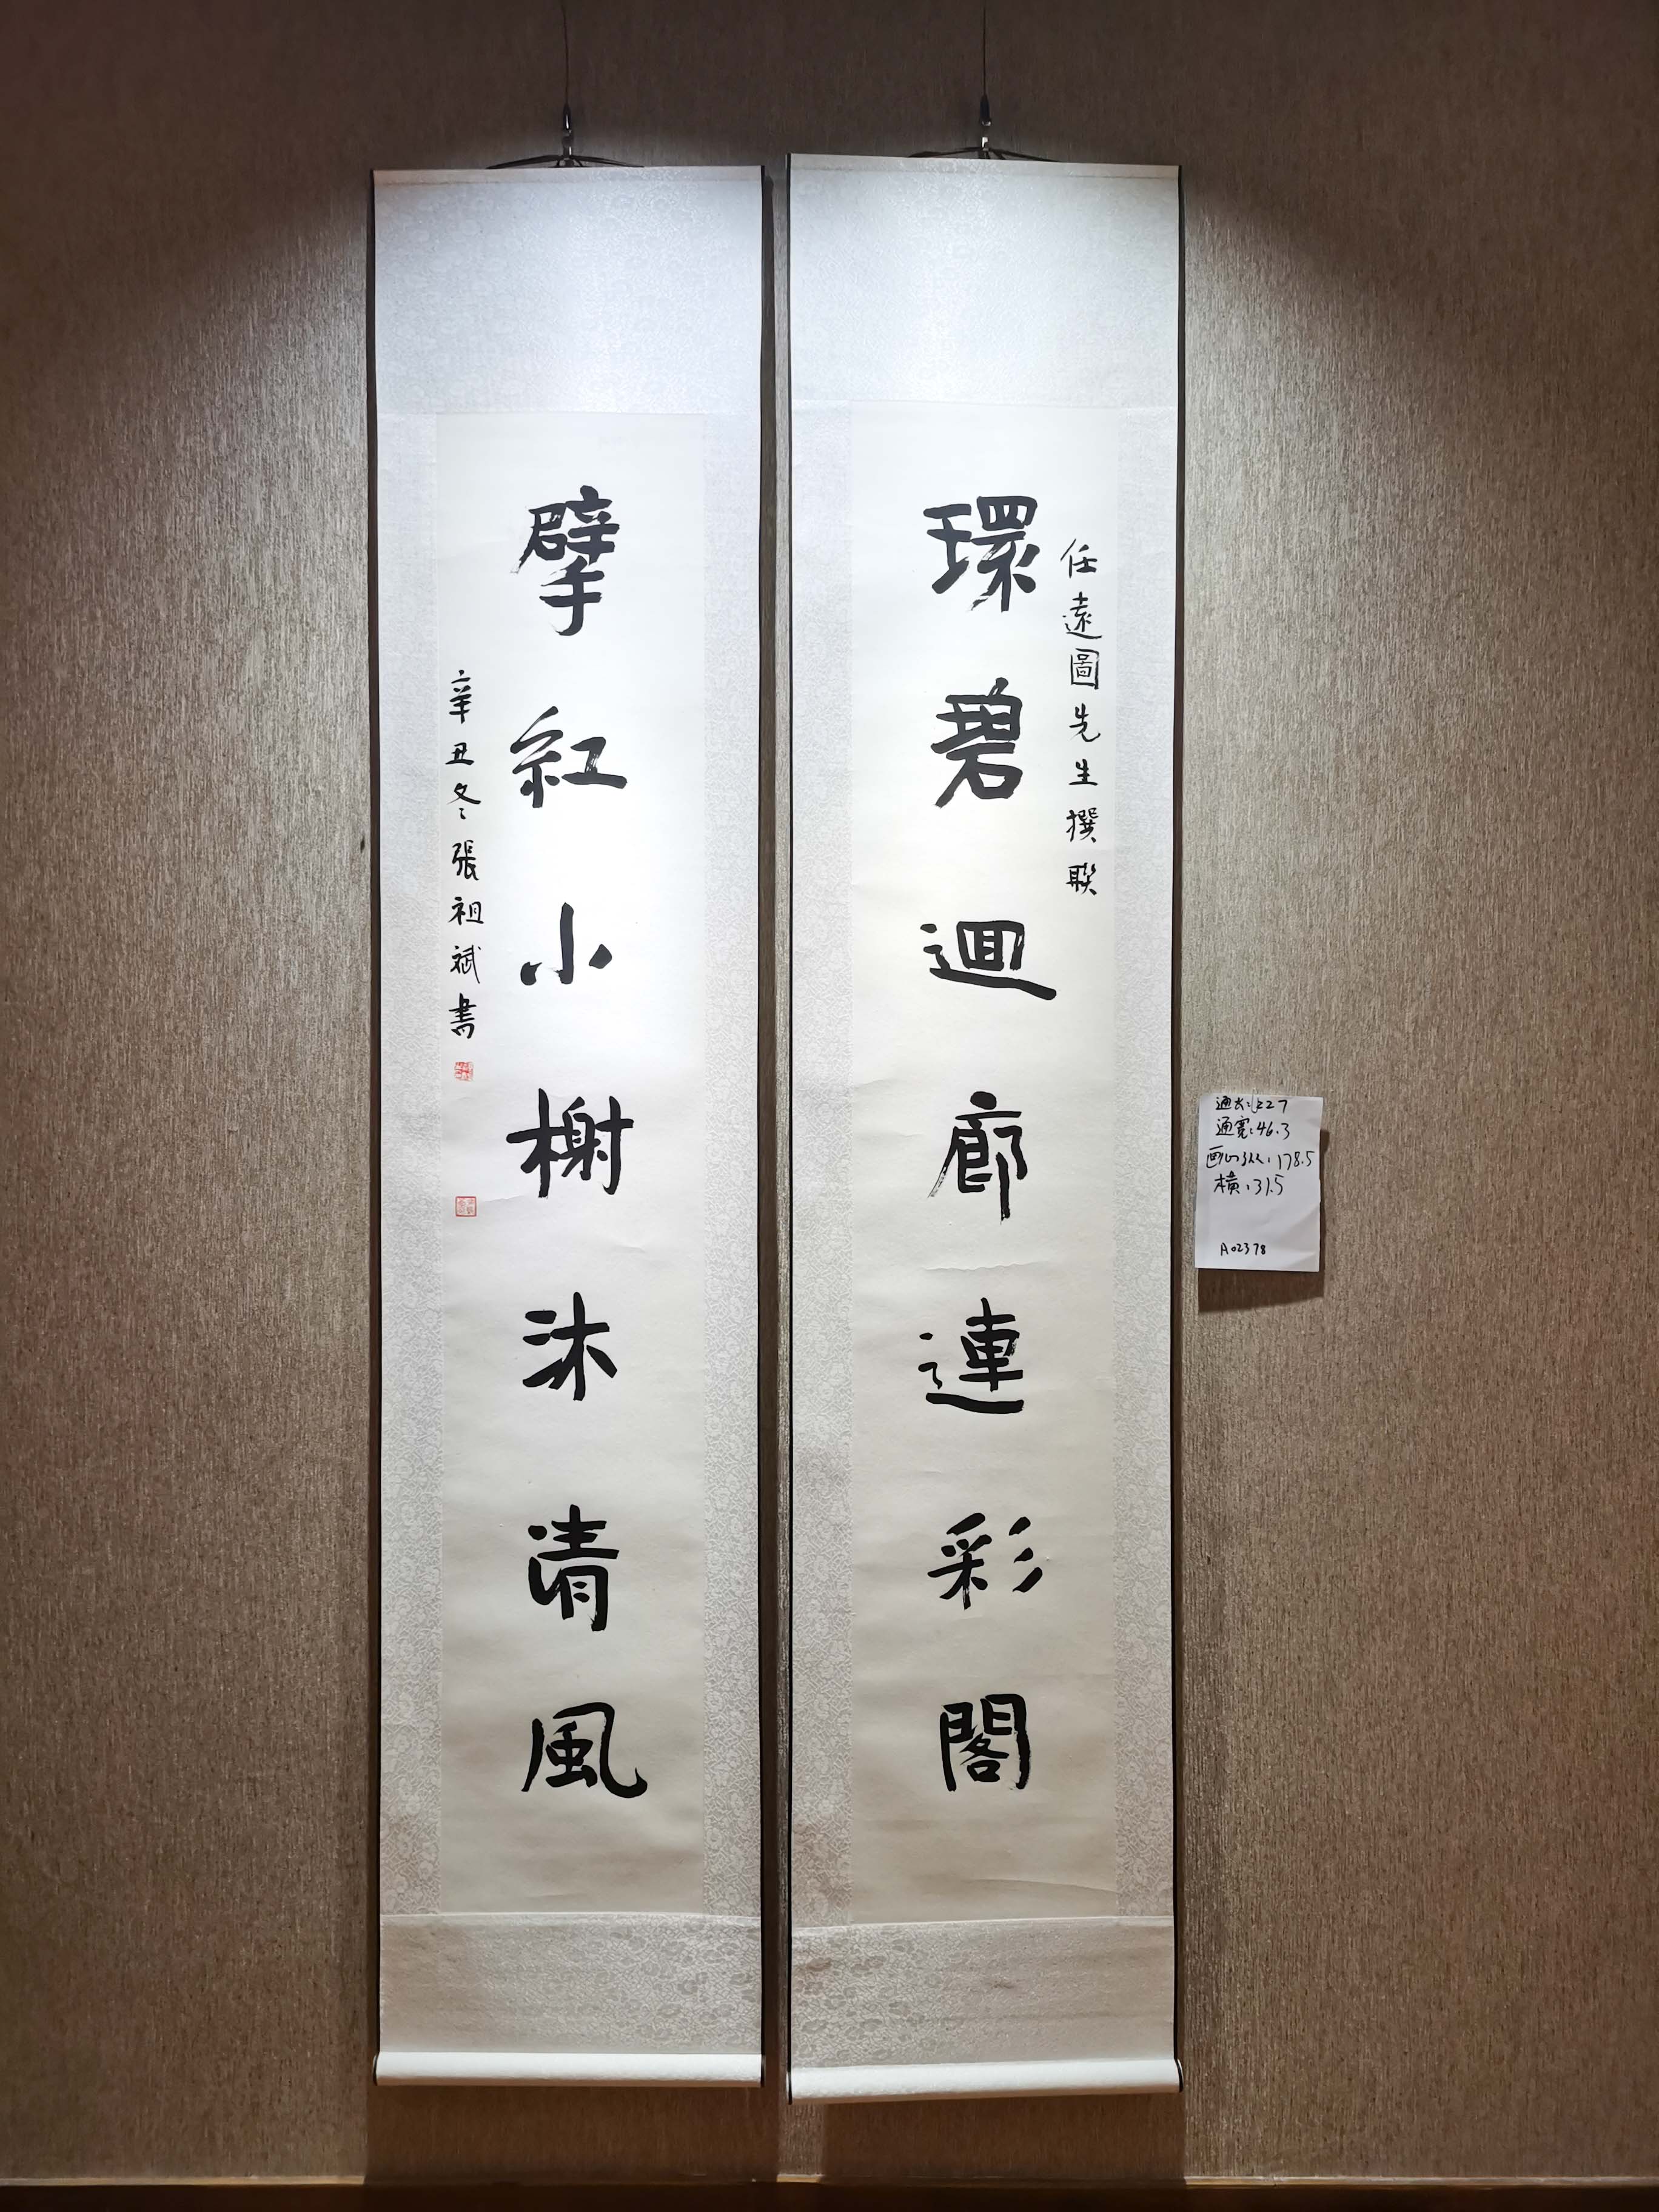 環碧迴廊連彩閣
任遠圖先生撰聯
擘紅小榭沐清風
辛丑冬張祖斌書
通长:227
通宽:46.3
画心纵:178.5
横:31.5
A02378